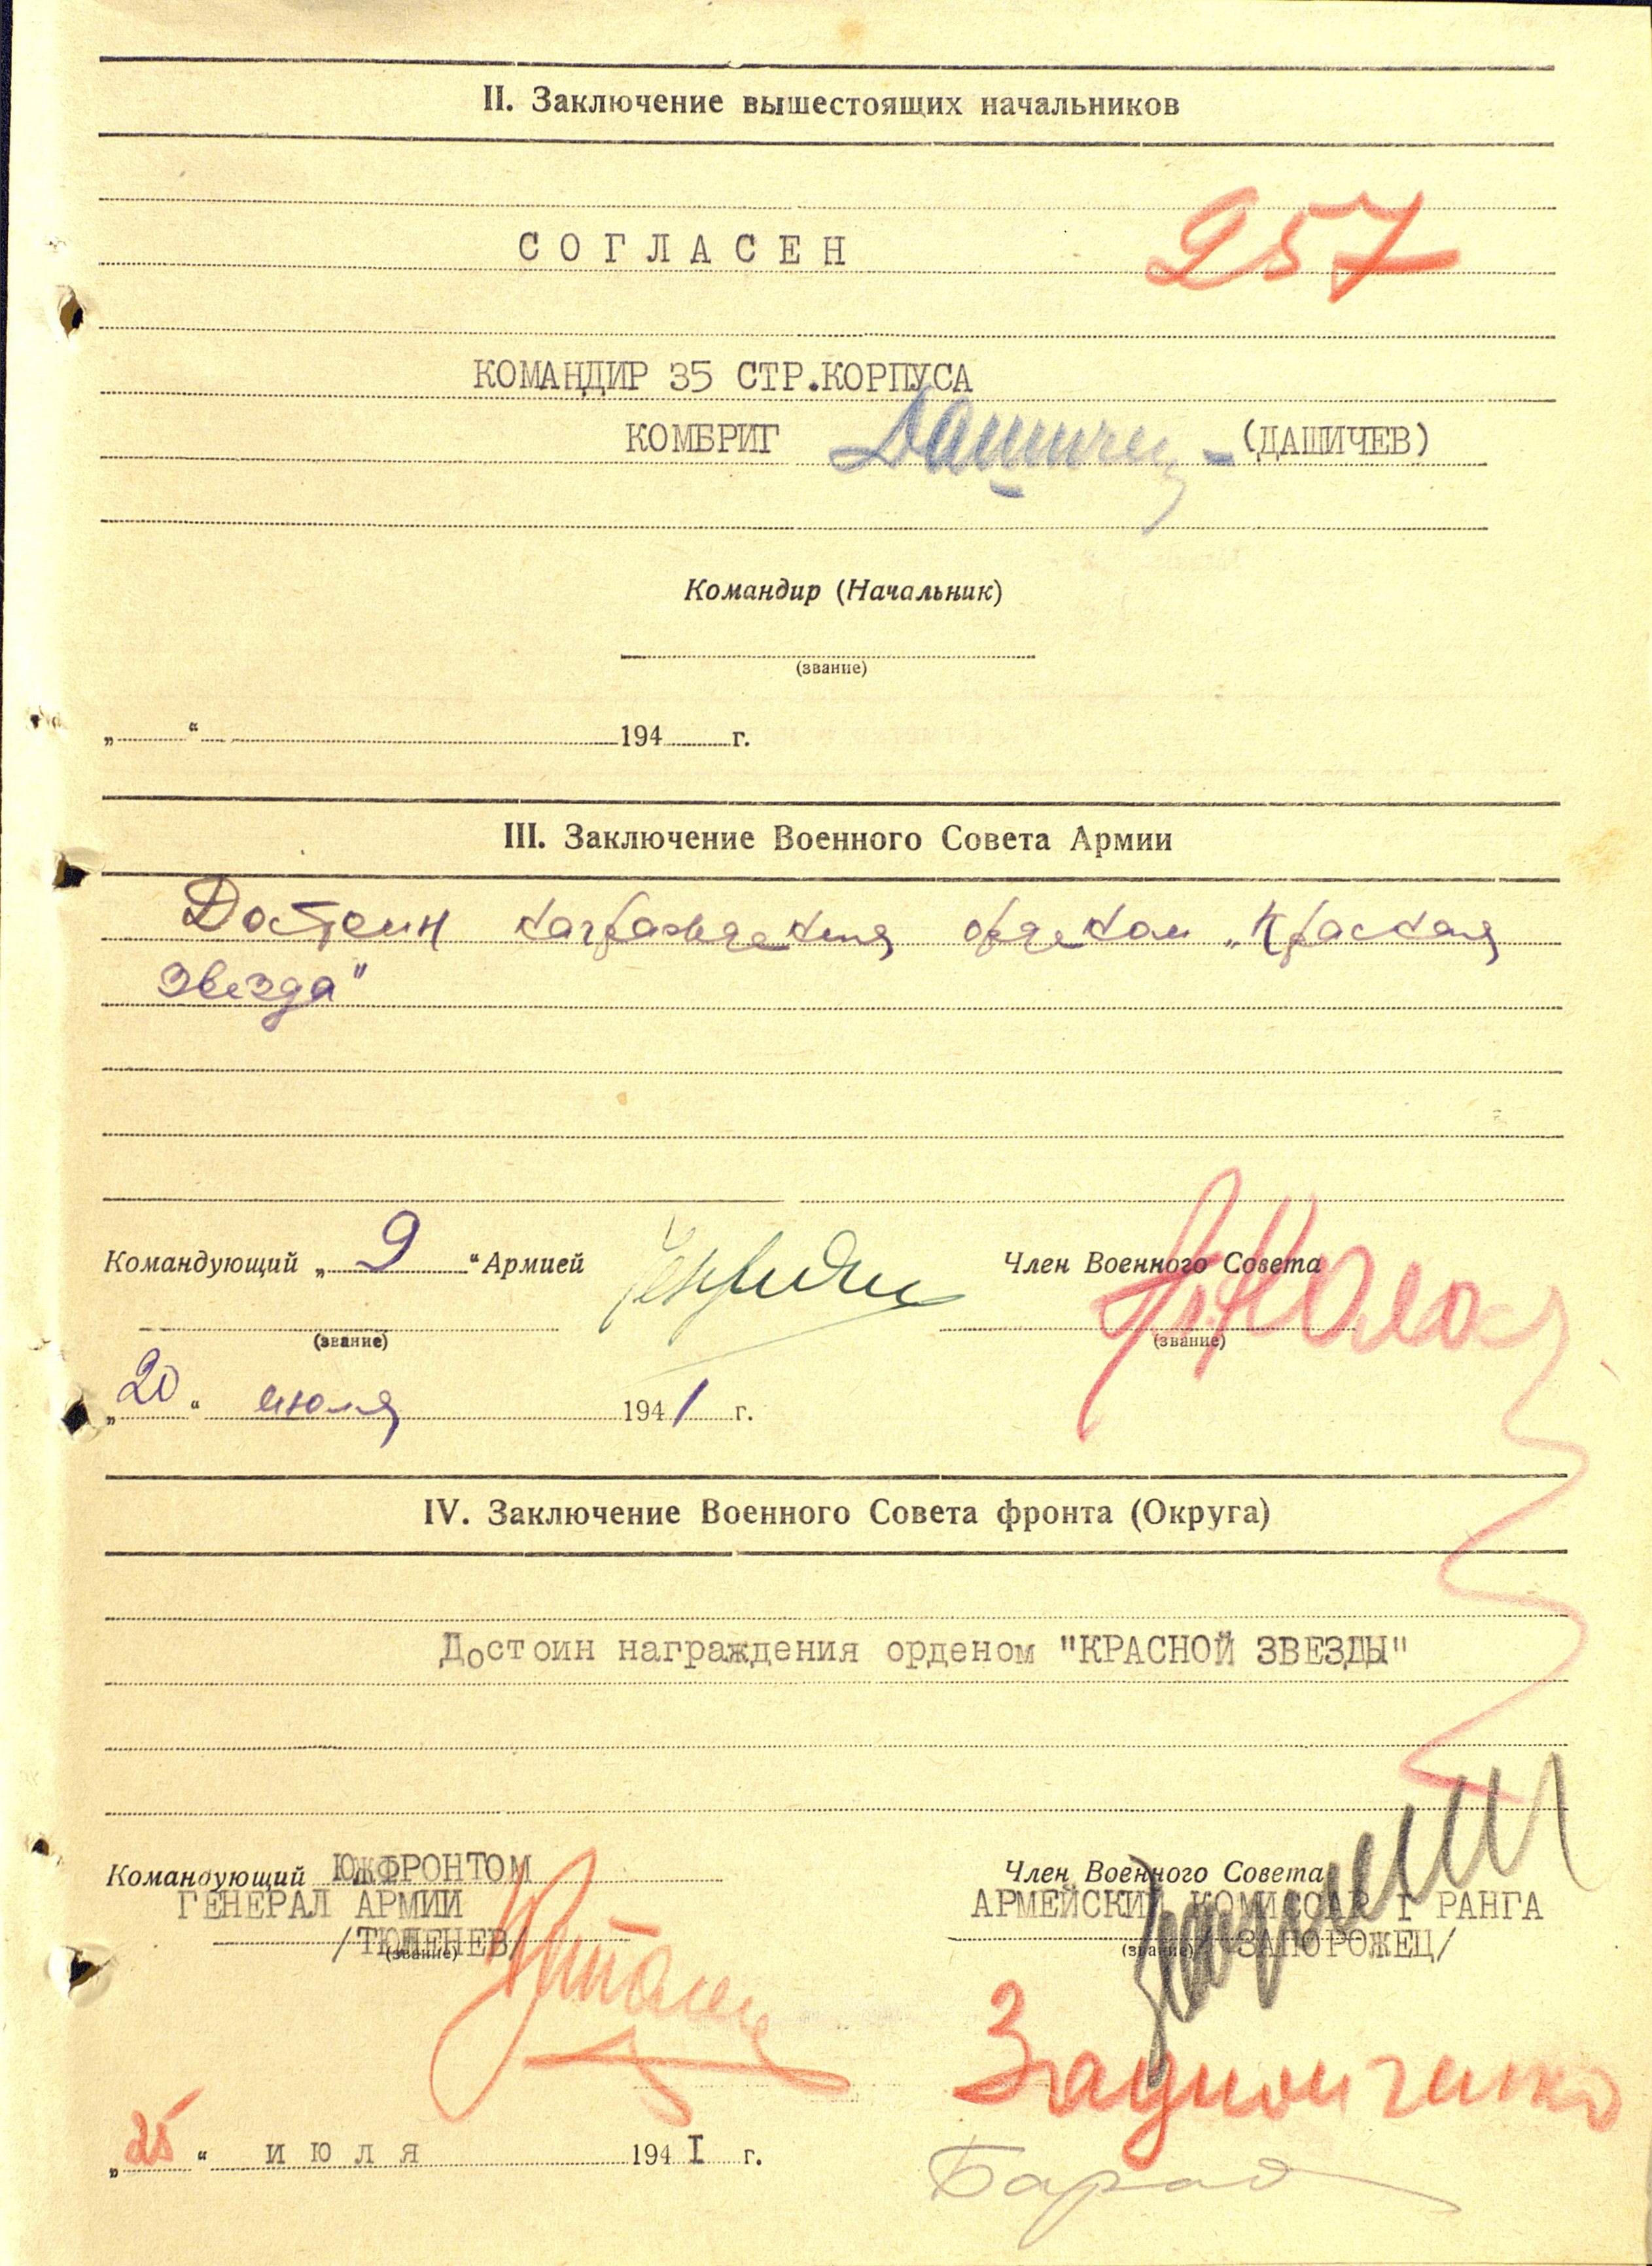 II. Заключение вышестоящих начальников
257
СОГЛАСЕН
КОМАНДИР 35 СТР.КОРПУСА
КОМБРИГ Дашичев (ДАШИЧЕВ)
Командир (Начальник)
(звание)
„ “ 194 г.
III. Заключение Военного Совета Армии
Достоин награждения орденом „Красная
Звезда"
Командующий „ 9 “ Армией Член Военного Совета
(звание) (звание)
„20“ июля 1941 г.
IV. Заключение Военного Совета фронта (Округа)
Достоин награждения орденом "КРАСНОЙ ЗВЕЗДЫ"
Командующий ЮЖФРОНТОМ Член Военного Совета
ГЕНЕРАЛ АРМИИ АРМЕЙСКИЙ КОМИССАР I РАНГА
/ТЮЛЕНЕВ/ (звание) (звание) /ЗАПОРОЖЕЦ/
Задионченко
„25“ ИЮЛЯ 194I г.